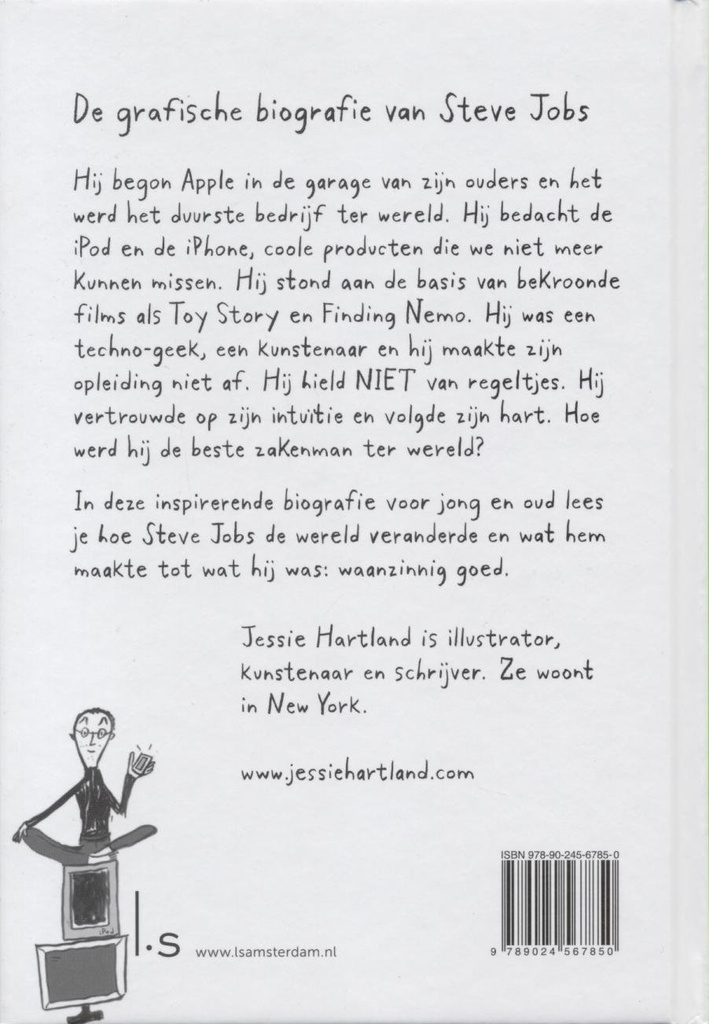 De grafische biografie van Steve Jobs
Hij begon Apple in de garage van zijn ouders en het
werd het duurste bedrijf ter wereld. Hij bedacht de
iPod en de iPhone, coole producten die we niet meer
kunnen missen. Hij stond aan de basis van bekroonde
films als Toy Story en Finding Nemo. Hij was een
techno-geek, een kunstenaar en hij maakte zijn
opleiding niet af. Hij hield NIET van regeltjes. Hij
vertrouwde op zijn intuïtie en volgde zijn hart. Hoe
werd hij de beste zakenman ter wereld?
In deze inspirerende biografie voor jong en oud lees
je hoe Steve Jobs de wereld veranderde en wat hem
maakte tot wat hij was: waanzinnig goed.
Jessie Hartland is illustrator,
kunstenaar en schrijver. Ze woont
in New York.
www.jessiehartland.com
ISBN 978-90-245-6785-0
9 789024 567850
iPad
l.s www.lsamsterdam.nl